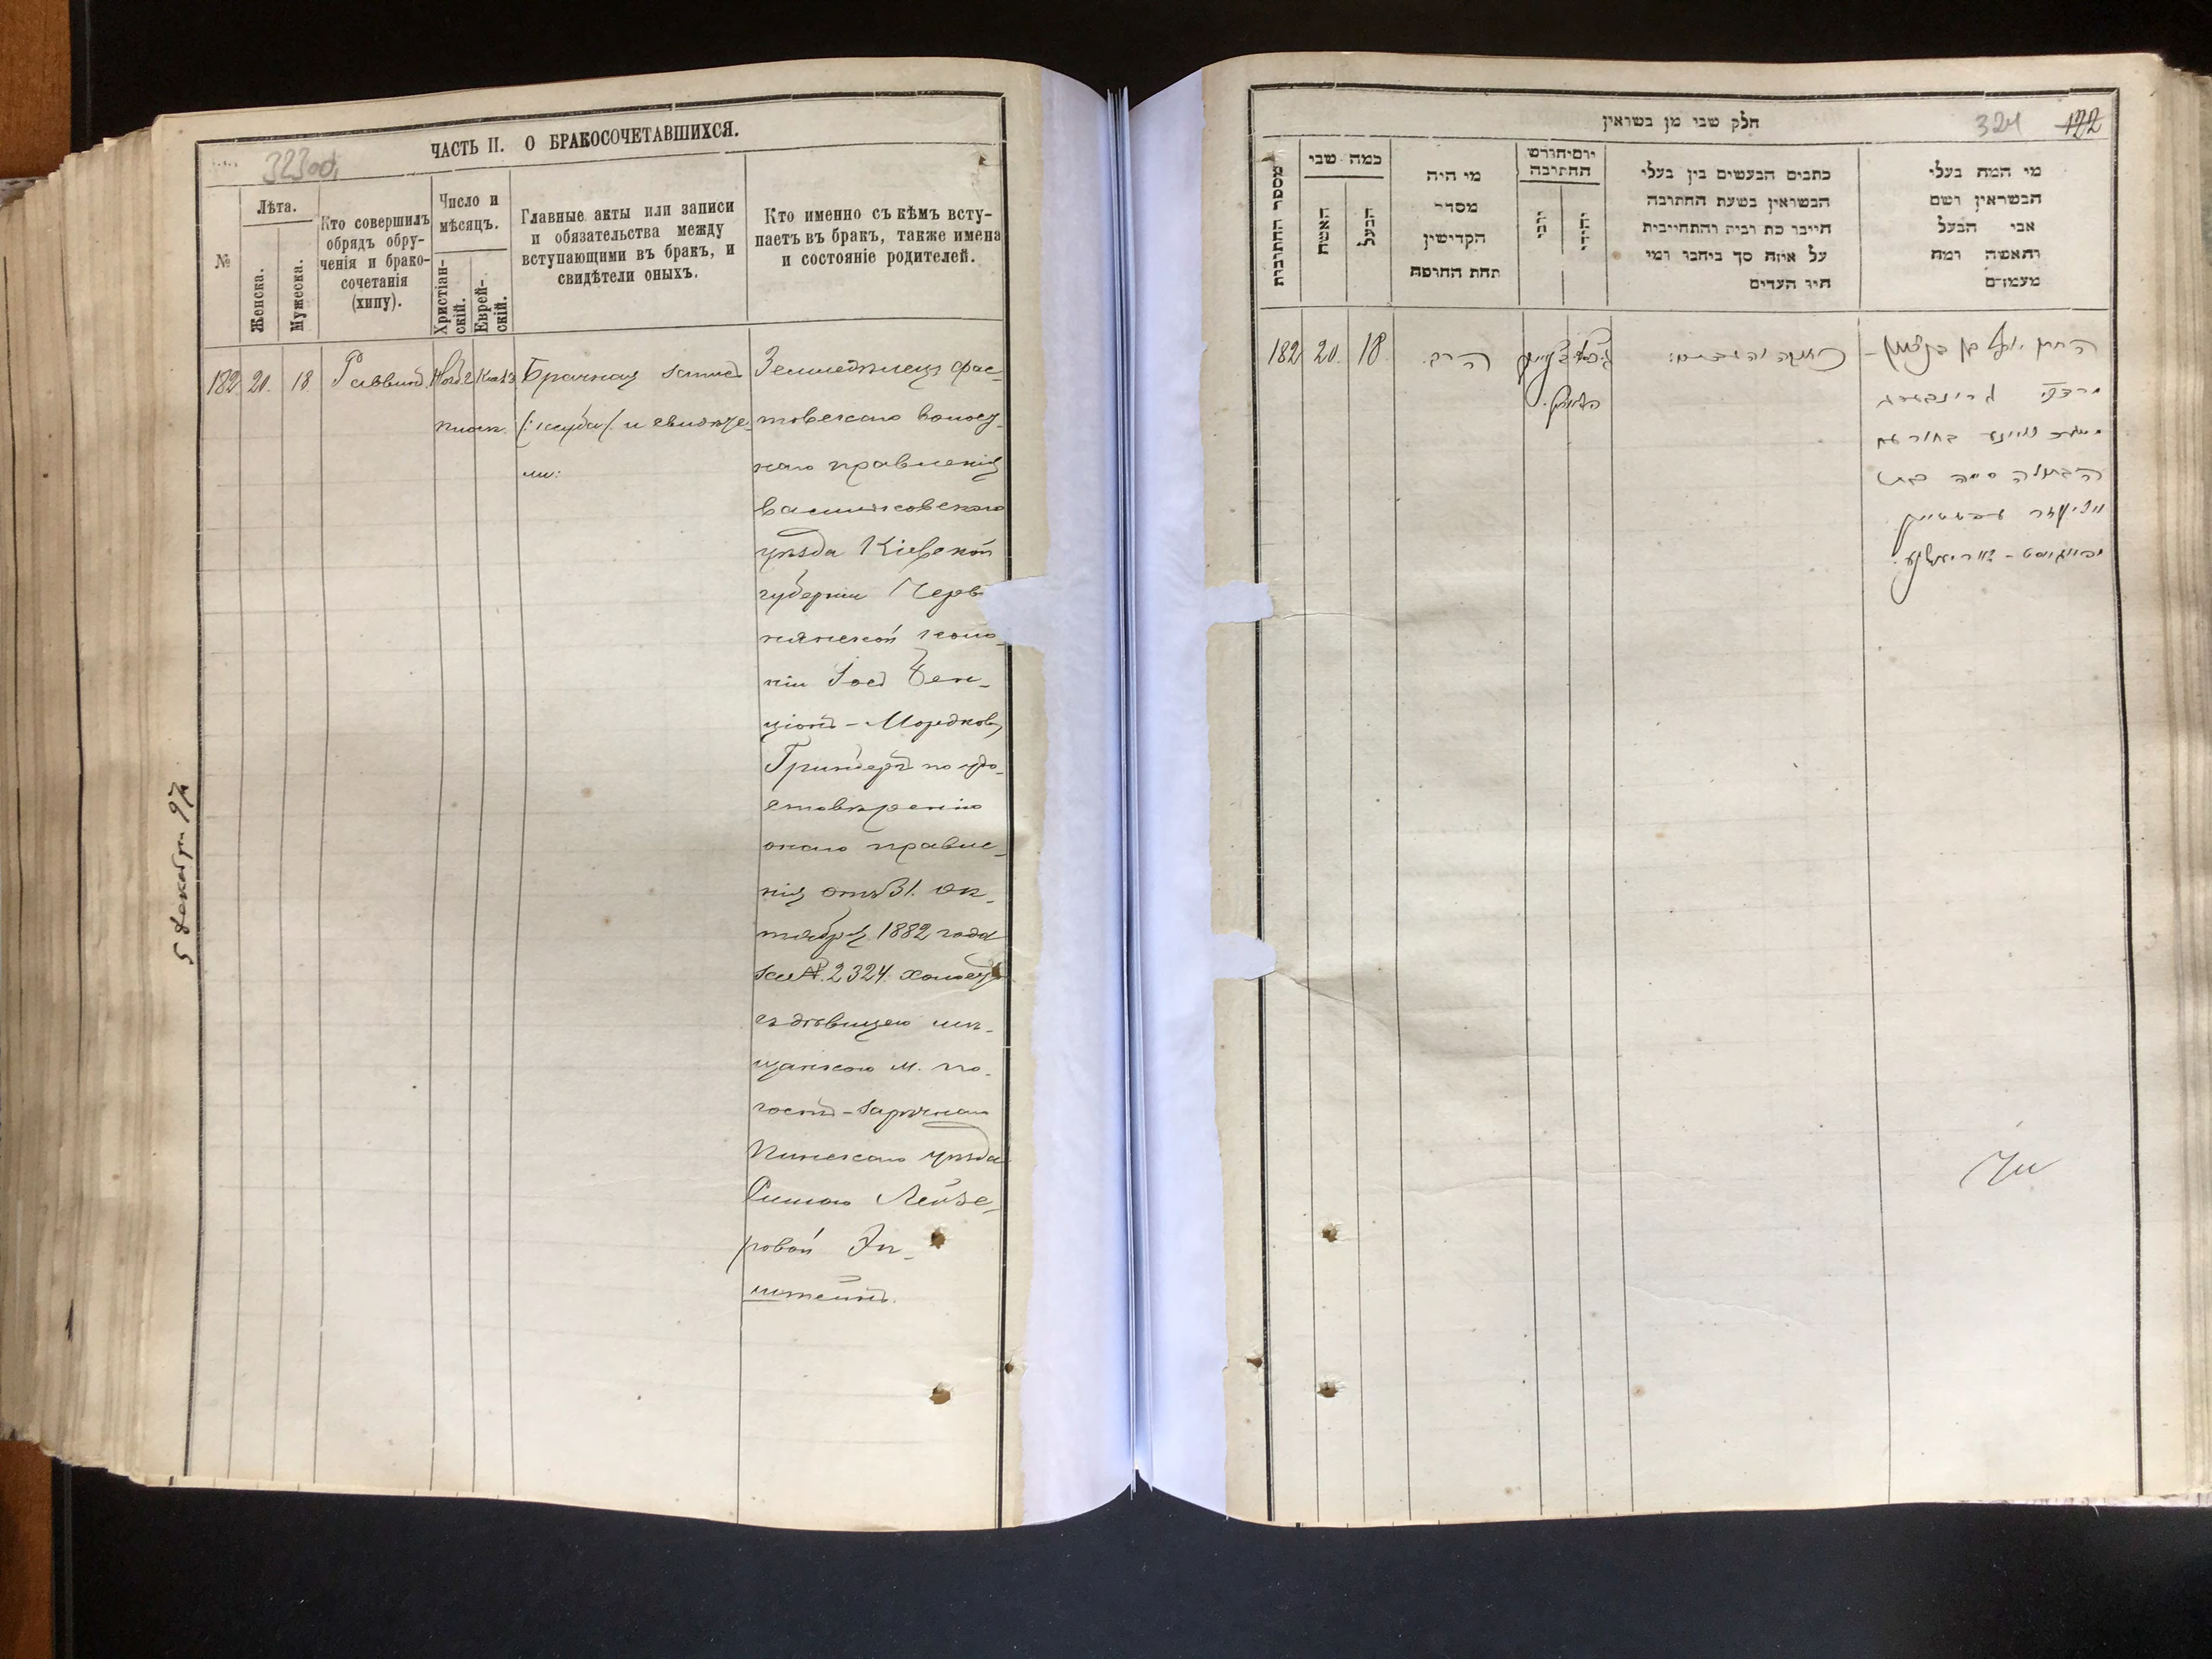 ЧАСТЬ II. О БРАКОСОЧЕТАВШИХСЯ.
323об.
№
Лѣта.
Женска.
Мужеска.
Кто совершилъ
обрядъ обру-
ченія и брако-
сочетанія
(хипу).
Число и
мѣсяцъ.
Христіан-
скій.
Еврей-
скій.
Главные акты или записи
и обязательства между
вступающими въ бракъ, и
свидѣтели оныхъ.
Кто именно съ кѣмъ всту-
паетъ въ бракъ, также имена
и состояніе родителей.
182
20.
18.
Раввинъ.
Брачная запись
и свидѣте-
ли:
Земледѣлецъ Фас-
товскаго волост-
наго правленія
Васильковскаго
уѣзда Кіевской
губерніи Черв
нянской коло-
ніи Іоель Бен-
ціонъ-Мордковъ
Гринберъ по удо-
стовѣренію
онаго правле-
нія отъ 31. Ок-
тября 1882 года
за №. 2324. холостъ
съ дѣвицею мѣ-
щанкою м. По-
гостъ-Зарѣчнаго
Пинскаго уѣзда
Симою Лейзе-
ровой Эп-
штейнъ.
5 декабря 97
חלק שני מן נשואין
324 122
מספר החתונות
כמה שני
האשה
הבעל
מי היה
מסדר
הקדישין
תחת החופה
יום וחודש
החתונה
כתבים הנעשים בין בעלי
הנשואין בשעת החתונה
היינו כת ובית והתחייבות
על איזה סך ניתנו ומי
היו העדים
מי המה בעלי
הנשואין ושם
אבי הבעל
והאשה ומה
מעמדם
182
20.
18.
הרב.
החתן יואל בן ציון-
מרדכי גרינבערג
הבתולה סימה בת
עפשטיין